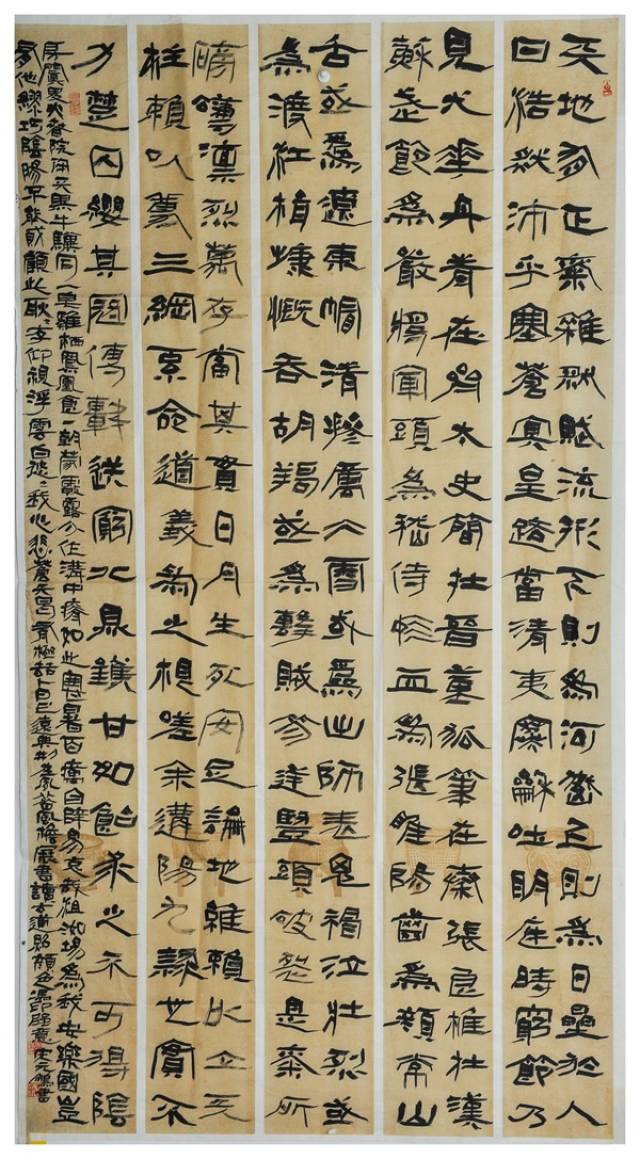 天地有正氣雜然賦流形下則為河嶽上則為日星於人
曰浩然沛乎塞蒼冥皇路當清夷含和吐明庭時窮節乃
見一一垂丹青在齊太史簡在晉董狐筆在秦張良椎在漢
蘇武節為嚴將軍頭為嵇侍中血為張睢陽齒為顏常山
舌或為遼東帽清操厲冰雪或為出師表鬼神泣壯烈或
為渡江楫慷慨吞胡羯或為擊賊笏逆豎頭破裂是氣所
磅礴凜烈萬存當其貫日月生死安足論地維賴以立天
柱賴以尊三綱系命道義為之根嗟余遘陽九隸也實不
力楚囚纓其冠傳車送窮北鼎鑊甘如飴求之不可得陰
房闃鬼火春院閟天黑牛驥同一皂雞栖鳳凰食一朝蒙霧露分作溝中瘠如此再寒暑百癘自辟易哀哉沮洳場為我安樂國豈
有他繆巧陰陽不能賊顧此耿〻在仰視浮雲白悠〻我心悲蒼天曷有極哲人日已遠典刑在夙昔風簷展書讀古道照顏色書